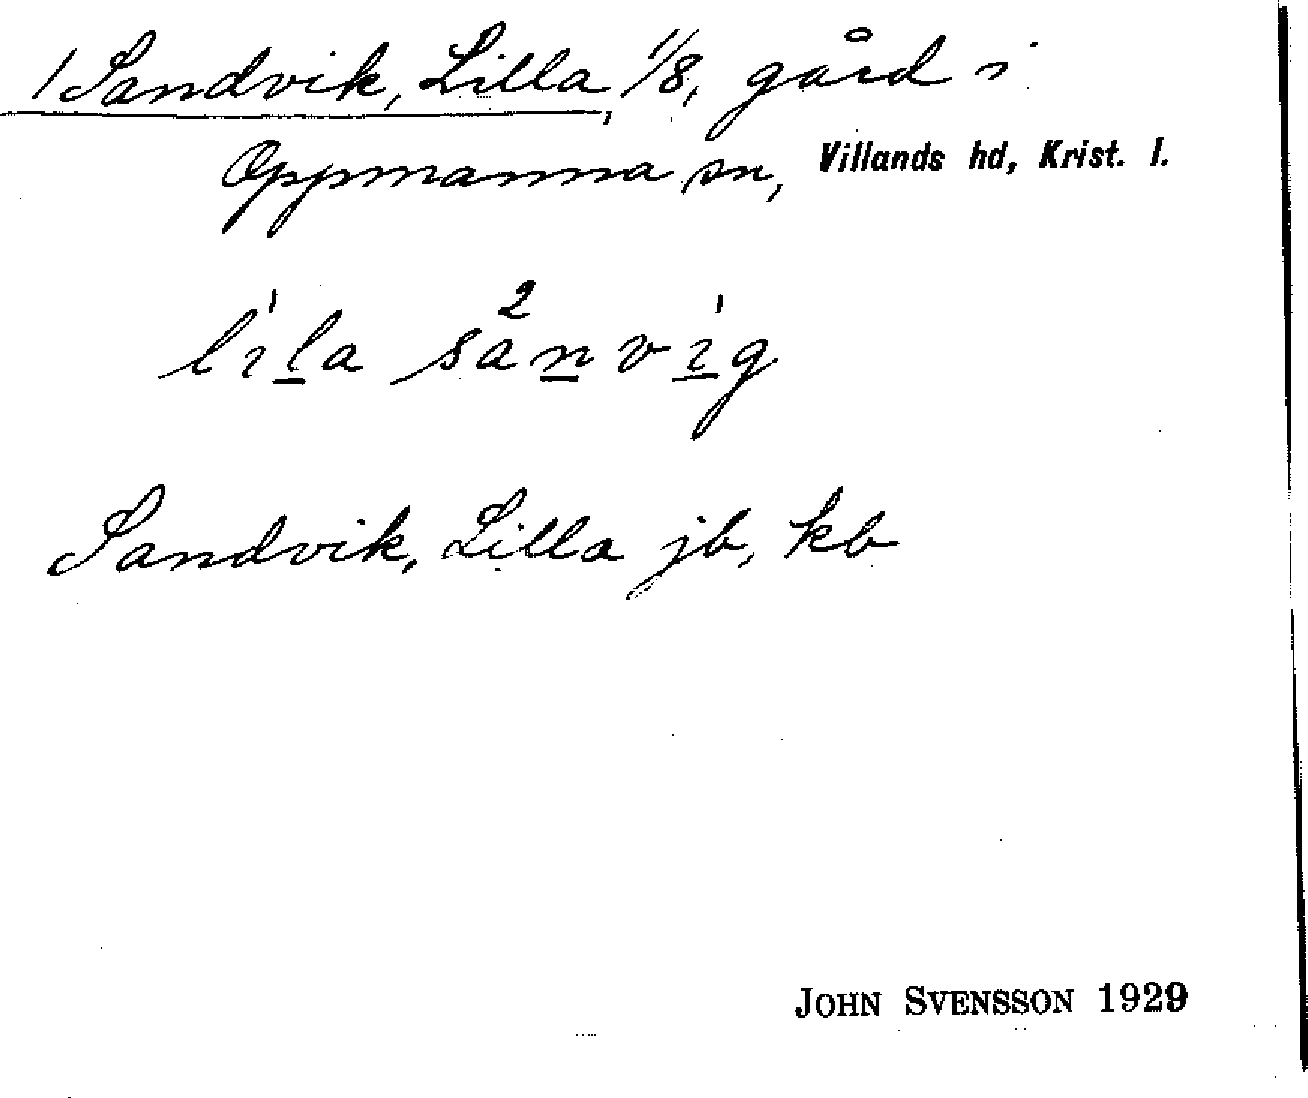 1 Sandvik, Lilla, 1/8, gård i
Oppmanna sn, Villands hd, Krist. l.
lila sanvig
Sandvik, Lilla jb, kb
JOHN SVENSSON 1929